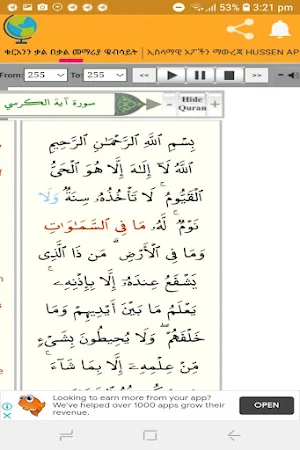 53% 3:21 pm
ቁርአንን ቃል በቃል መማሪያ ዌብሳይት | ኢስላማዊ አፖችን ማውረጃ HUSSEN AP
From: 255 To: 255
سورة آية الكرسي
Hide
Quran
بِسْمِ اللَّهِ الرَّحْمَٰنِ الرَّحِيمِ
اللَّهُ لَا إِلَٰهَ إِلَّا هُوَ الْحَيُّ
الْقَيُّومُ ۚ لَا تَأْخُذُهُ سِنَةٌ وَلَا
نَوْمٌ ۚ لَّهُ مَا فِي السَّمَاوَاتِ
وَمَا فِي الْأَرْضِ ۗ مَن ذَا الَّذِي
يَشْفَعُ عِندَهُ إِلَّا بِإِذْنِهِ ۚ
يَعْلَمُ مَا بَيْنَ أَيْدِيهِمْ وَمَا
خَلْفَهُمْ ۖ وَلَا يُحِيطُونَ بِشَيْءٍ
مِّنْ عِلْمِهِ إِلَّا بِمَا شَاءَ ۚ
Looking to earn more from your app?
We've helped over 1000 apps grow their
revenue.
OPEN